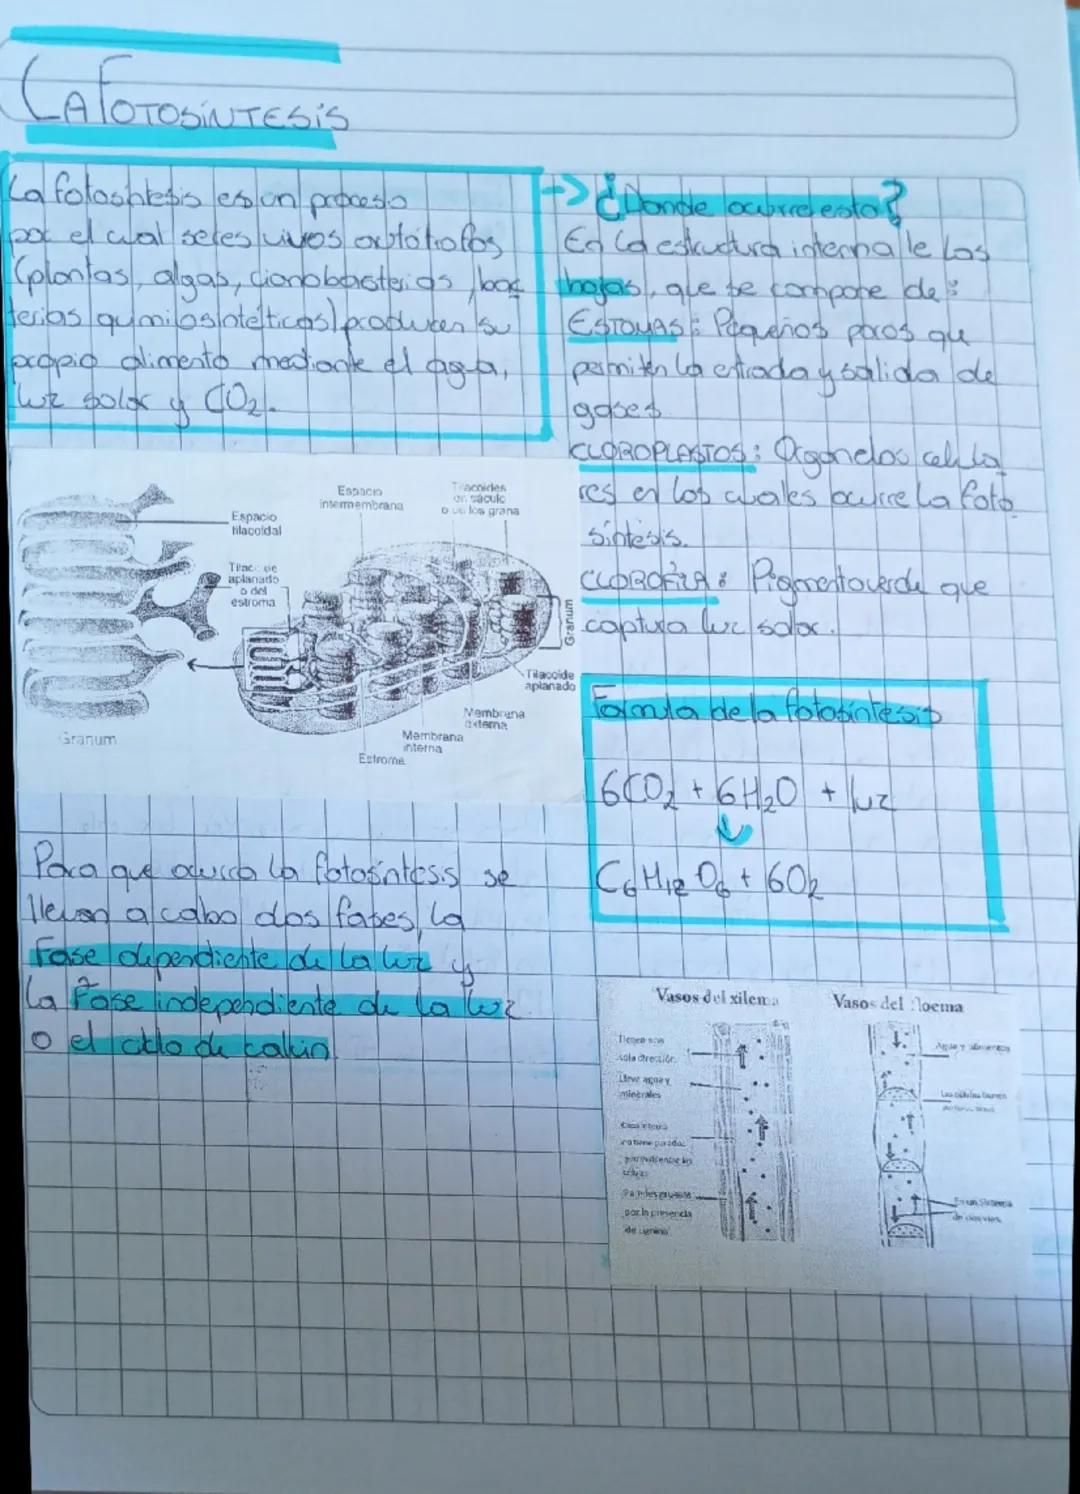 LA FOTOSíNTESiS
La fotosíntesis es un proceso
por el cual seres vivos autótrofos
(plantas, algas, cianobacterias, bac
terias quimiosintéticas) producen su
propio alimento mediante el agua,
luz solar y CO2.
-> ¿Donde ocurre esto?
En la estructura interna de las
hojas, que se compone de:
ESTOMAS: Pequeños poros que
permiten la entrada y salida de
gases.
CLOROPLASTOS: Organelos celula
res en los cuales ocurre la foto
síntesis.
CLOROFILA: Pigmento verde que
captura luz solar.
Espacio
tilacoidal
Espacio
intermembrana
Tilacoides
en sáculo
o de los grana
aplanado
o del
estroma
Granum
Tilacoide
aplanado
Membrana
externa
Membrana
interna
Estroma
Granum
Formula de la fotosíntesis
6CO2 + 6H2O + luz
↓
C6H12O6 + 6O2
Para que ocurra la fotosíntesis se
llevan a cabo dos fases, la
Fase dependiente de la luz y
la Fase independiente de la luz
o el ciclo de calvin
Vasos del xilema
Vasos del floema
Tienen una
sola dirección
Lleva agua y
minerales
Paredes gruesas
por la presencia
de lignina
Agua y alimentos